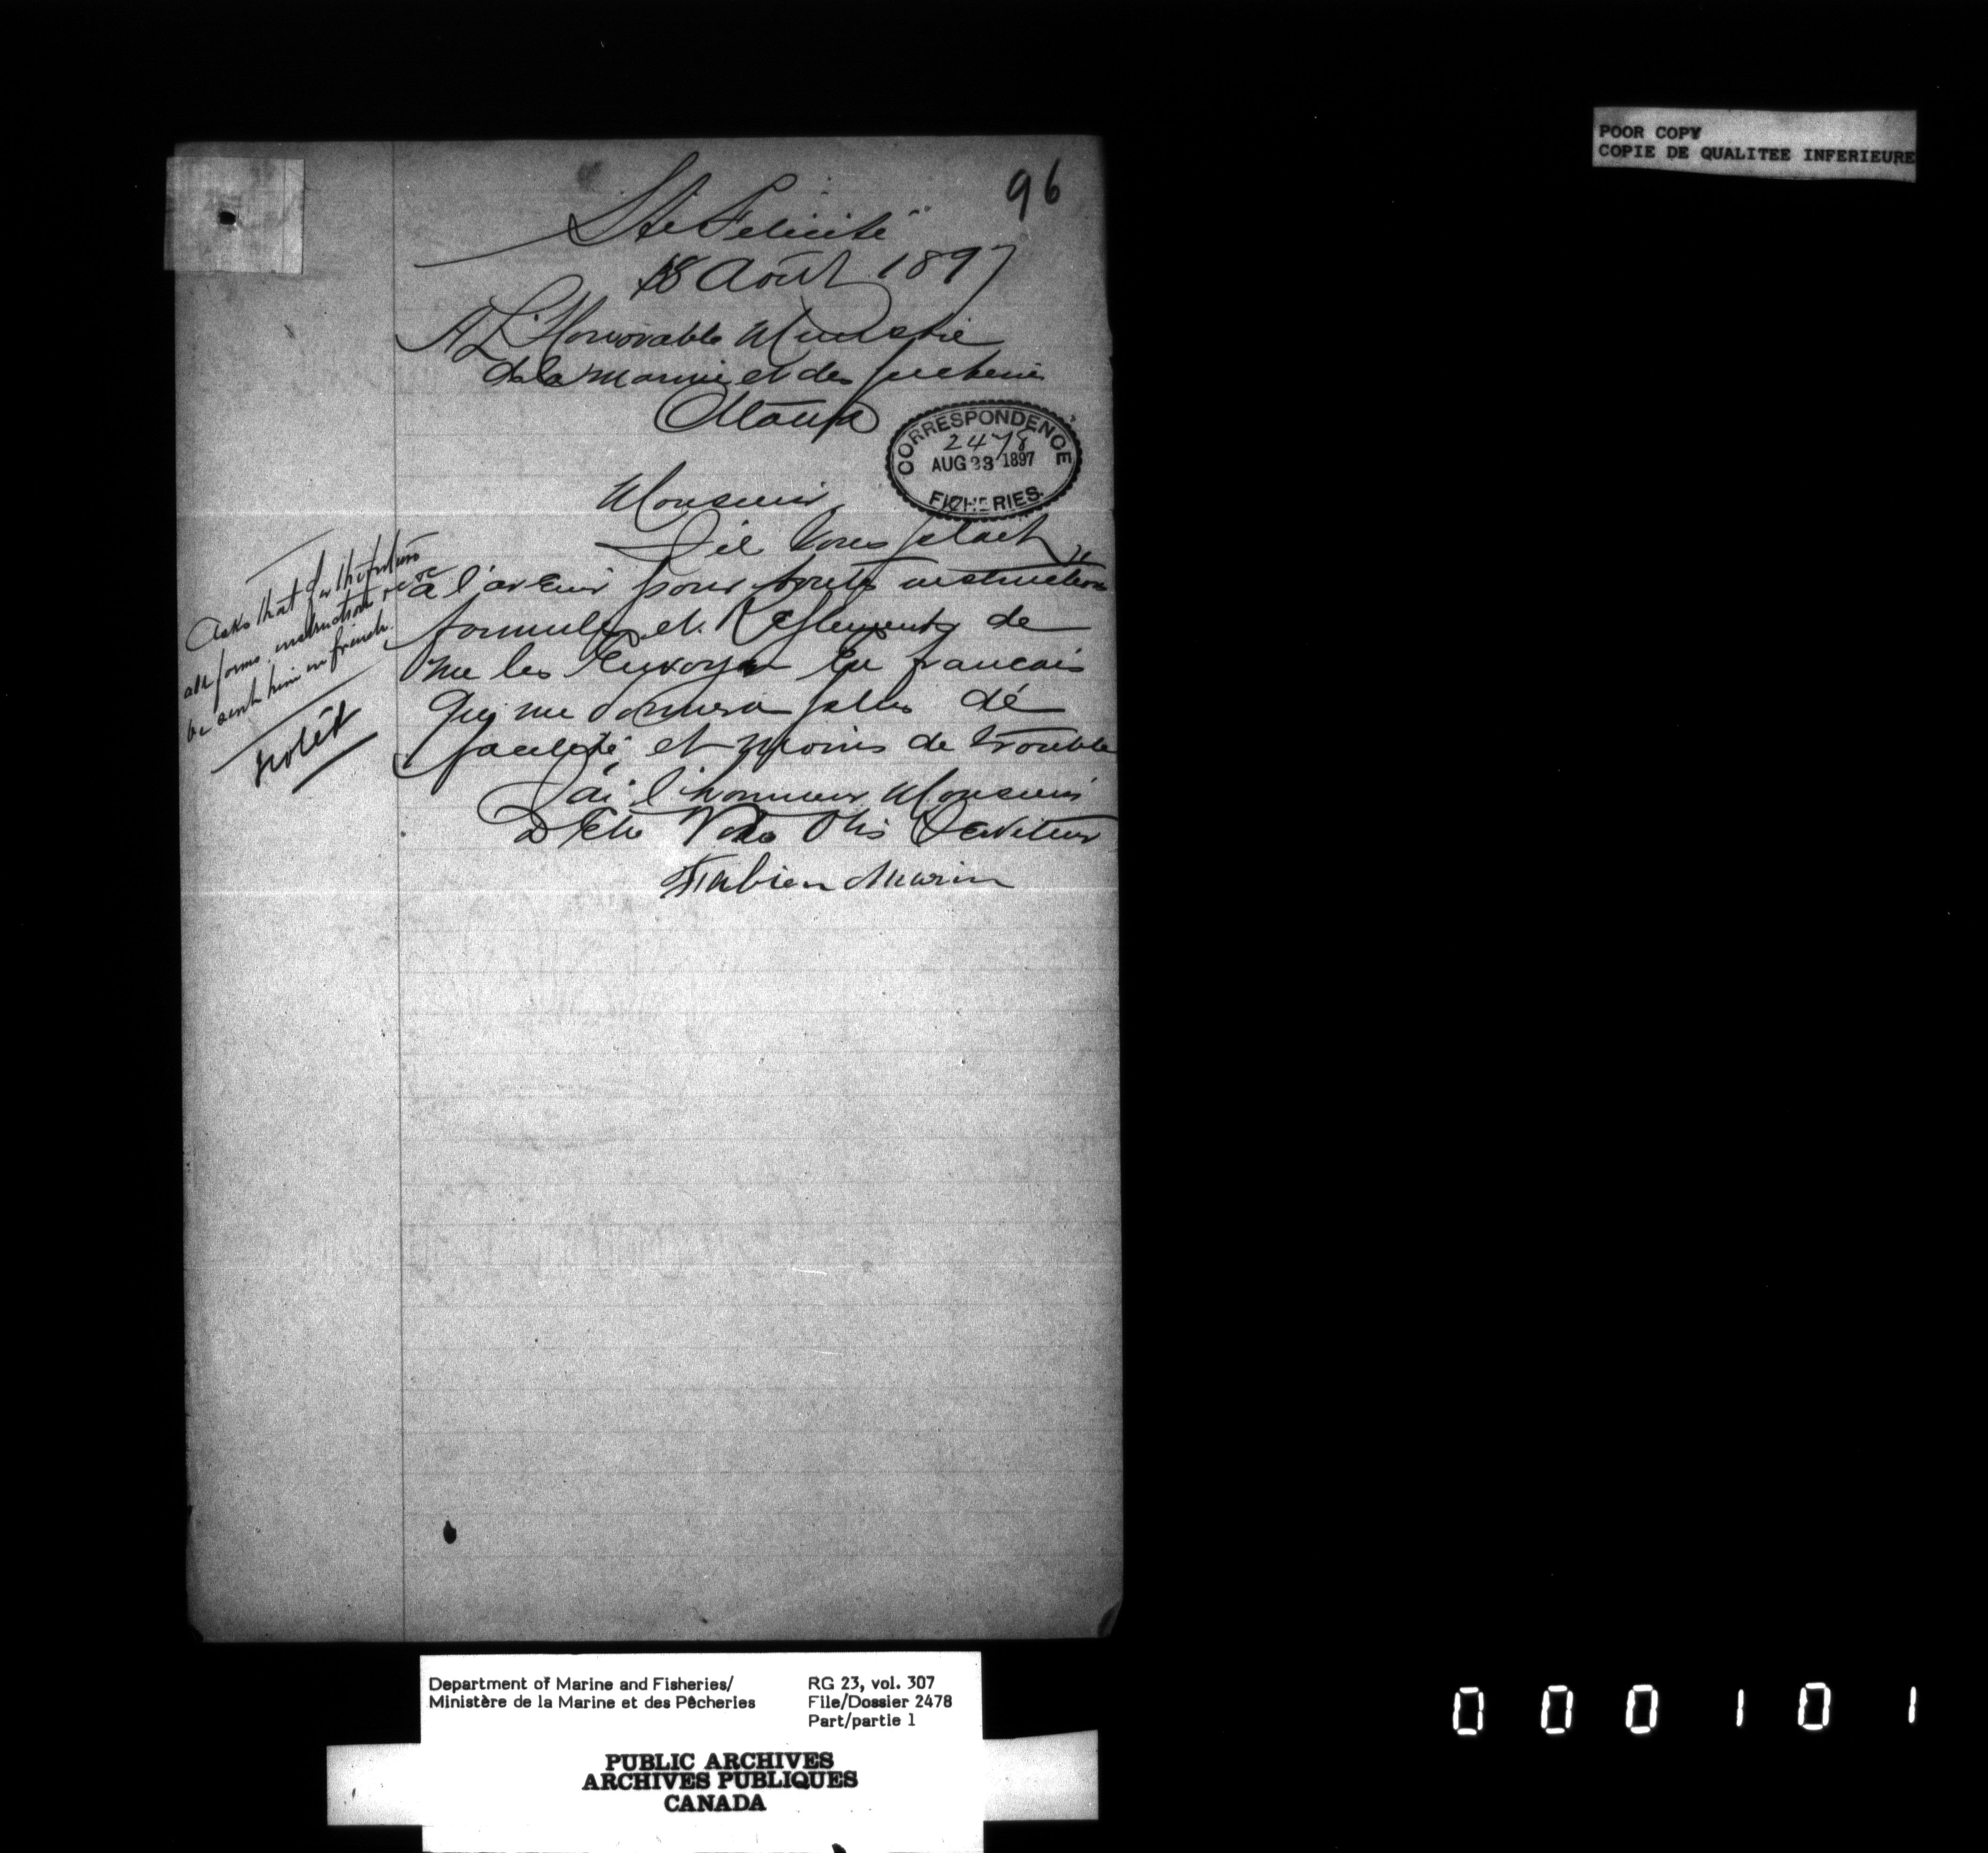 POOR COPY
COPIE DE QUALITEE INFERIEURE
96
Ste Felicité
18 Août 1897
A L'Honorable Ministre
de la Marine et des pecheries
Ottawa
CORRESPONDENCE
2478
AUG 23 1897
FISHERIES.
Monsieur
Sil vous plait
a l'avenir pour toutes instructions
formules et Reglements de
me les Envoyer En francais
Qui me donnera plus dé
facilité et moins de trouble
J'ai l'honneur Monsieur
D'Etre Votre Obis Serviteur
Fabien Murin
Asks that for the future
all forms instructions
be sent him in french
noted
Department of Marine and Fisheries/
Ministère de la Marine et des Pêcheries
RG 23, vol. 307
File/Dossier 2478
Part/partie 1
PUBLIC ARCHIVES
ARCHIVES PUBLIQUES
CANADA
000101